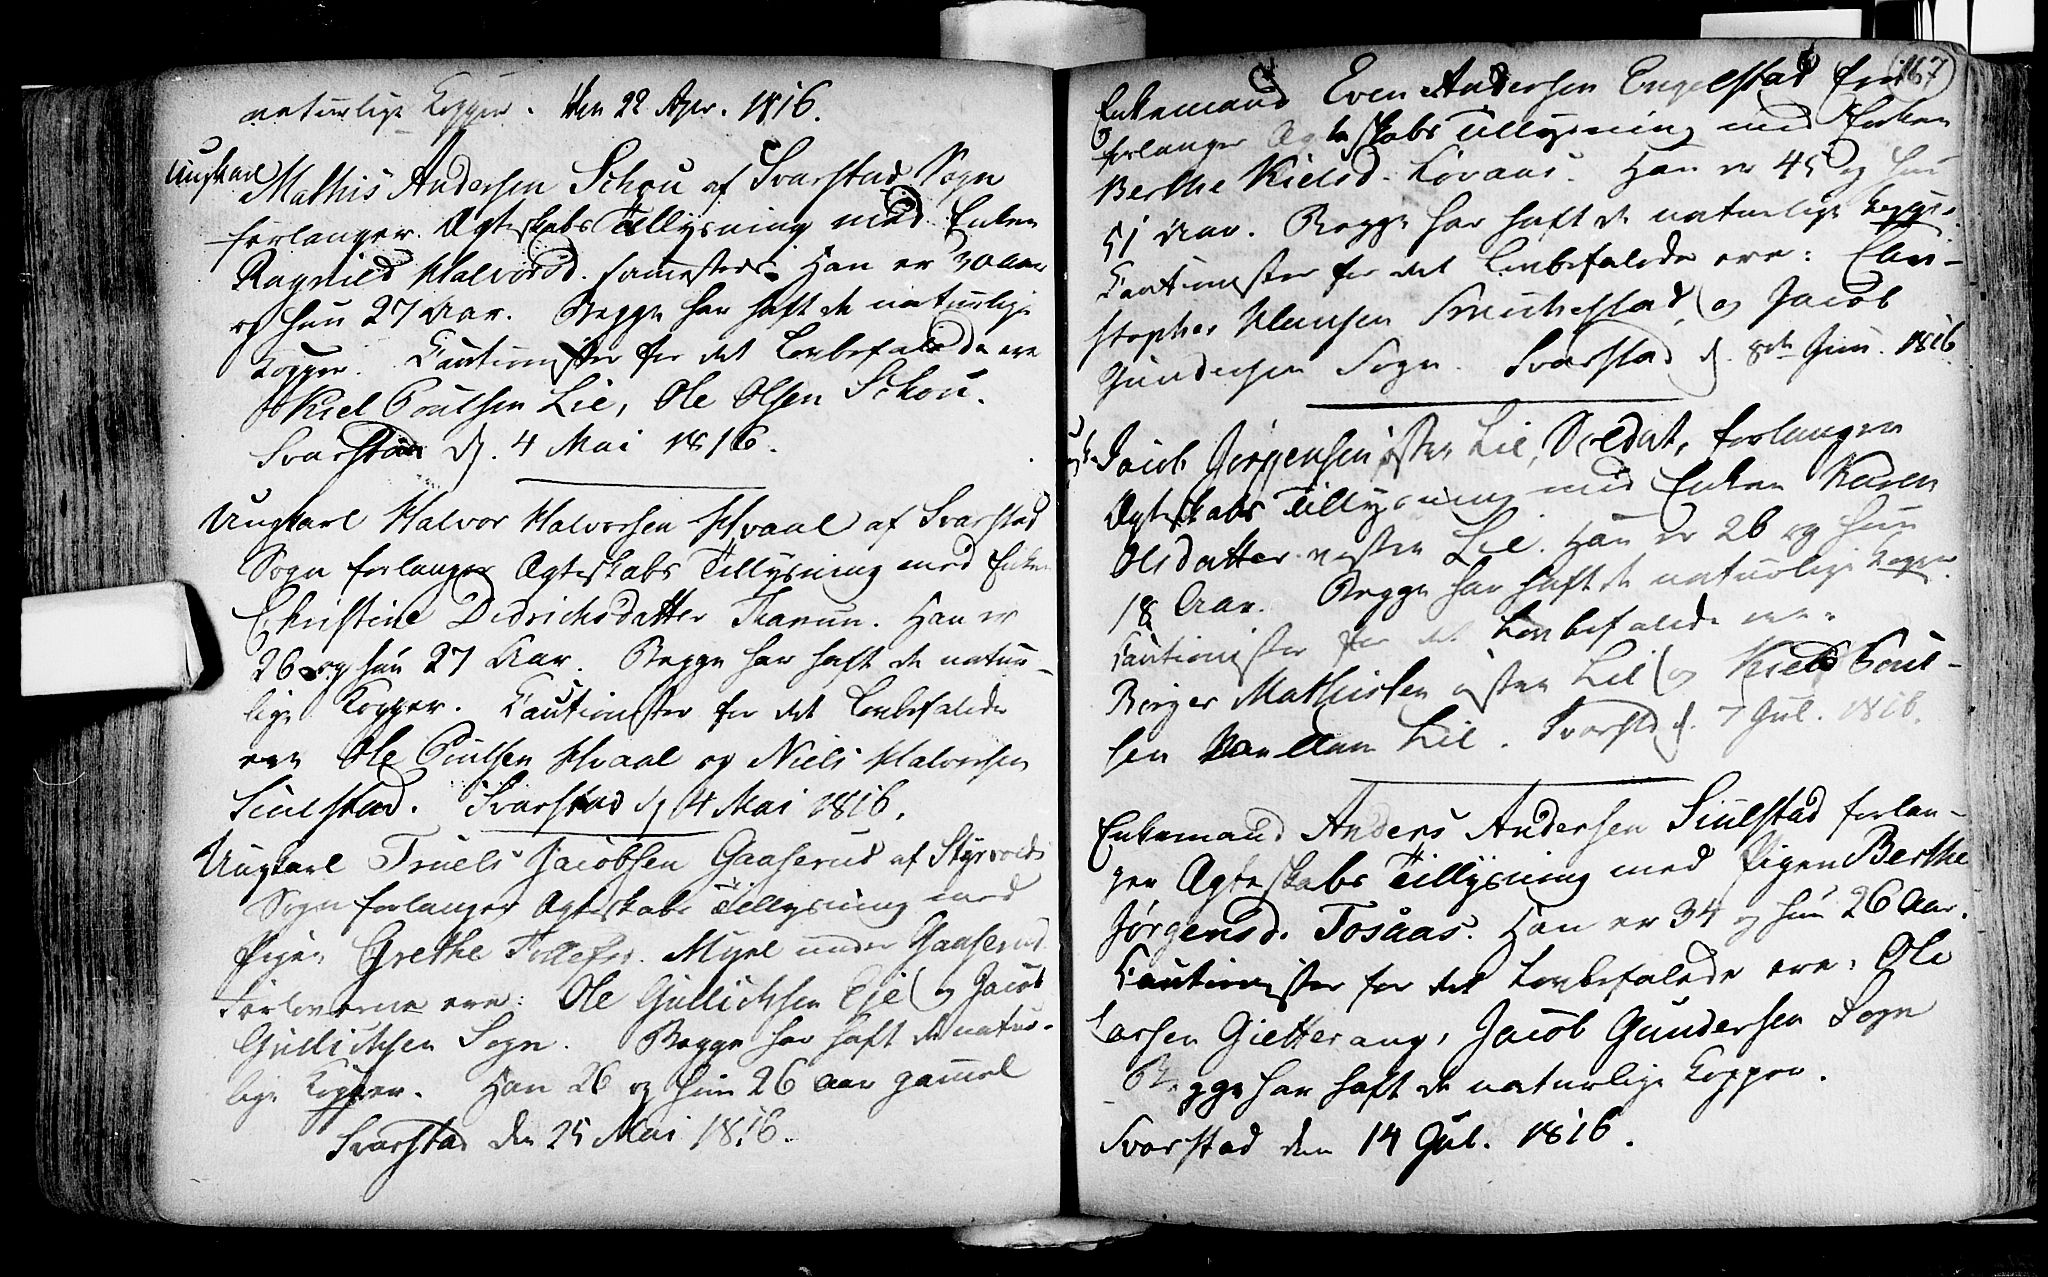 naturlige Kopper. den 22 Apr. 1816.
Ungkarl
Mathis Andersen Schou af Svarstad Sogn
forlanger Ægteskabs Tillysning med Enken
Ragnild Halvorsd. sammesteds. Han er 30 Aar
og hun 27 Aar. Begge har haft de naturlige
Kopper. Cautionister for det Lovbefalede ere
Kiel Poulsen Lie, Ole Olsen Schou.
Svarstad d. 4 Mai 1816.
Ungkarl Halvor Halvorsen Hvaal af Svarstad
Sogn forlanger Ægteskabs Tillysning med Enken
Christine Didrichsdatter Tharun. Han er
26 og hun 27 Aar. Begge har haft de natur-
lige Kopper. Cautionister for det Lovbefalede
ere Ole Poulsen Hvaal og Niels Halvorsen
Siulstad. Svarstad d. 4 Mai 1816.
Ungkarl Truels Jacobsen Gaaserud af Styrvolds
Sogn forlanger Ægteskabs Tillysning med
Pigen Grethe Tollefsd. Myre under Gaaserud.
Forloverne ere: Ole Gullichsen Eie og Jacob
Gullichsen Sogn. Begge har haft de natur-
lige Kopper. Han 26 og hun 26 Aar gammel
Svarstad den 25 Mai 1816.
167
Enkemand Even Andersen Engelstad
forlanger Ægteskabs Tillysning med Enken
Berthe Kielsd. Løvaas. Han er 45 og hun
51 Aar. Begge har haft de naturlige Kopper.
Cautionister for det Lovbefalede ere: Chri-
stopher Hansen Smuchestad, og Jacob
Gundersen Sogn. Svarstad d. 8de Jun. 1816
Jacob Jørgensen østen Lie, Soldat, forlanger
Ægteskabs Tillysning med Enken Karen
Olsdatter vesten Lie. Han er 26 og hun
18 Aar. Begge har haft de naturlige Kopper.
Cautionister for det Lovbefalede ere:
Børger Mathisen østen Lie og Kield Poul-
sen mellem Lie. Svarstd d. 7 Jul. 1816.
Enkemand Anders Andersen Siulstad forlan-
ger Ægteskabs Tillysning med Pigen Berthe
Jørgensd. Tosaas. Han er 34 og hun 26 Aar.
Cautionister for det Lovbefalede ere: Ole
Larsen Gietterang, Jacob Gundersen Sogn
Begge har haft de naturlige Kopper.
Svarstad den 14 Jul. 1816.